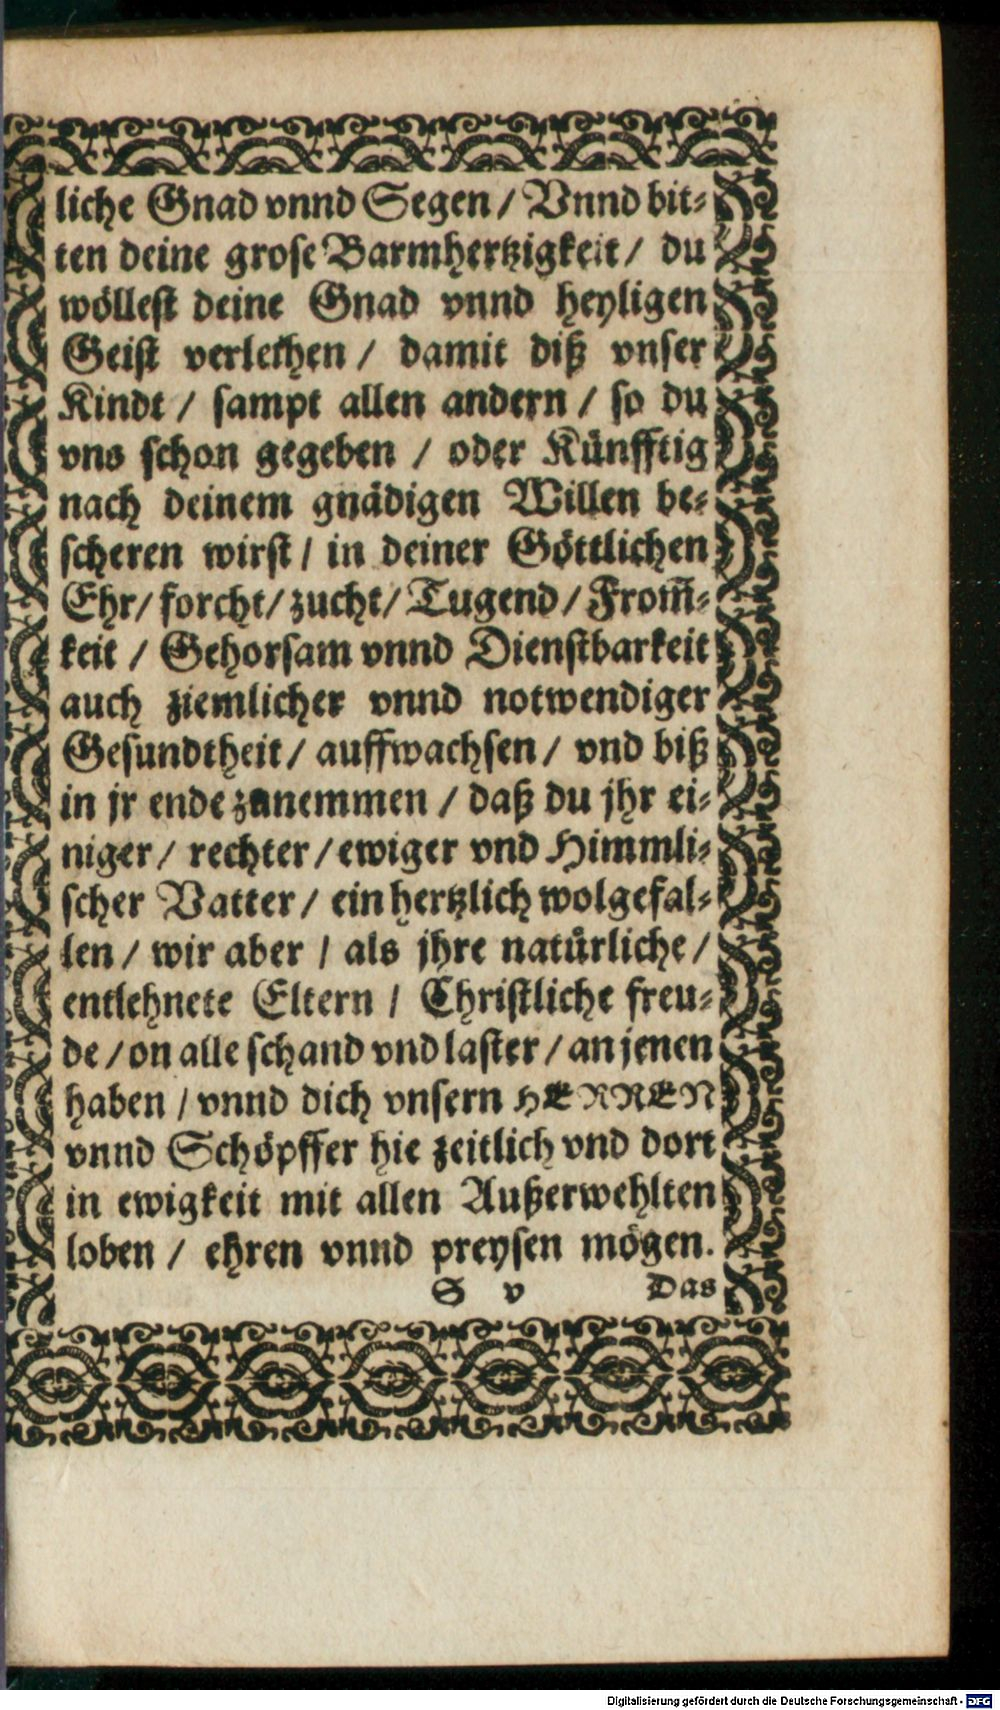 liche Gnad vnnd Segen / Vnnd bit⸗
ten deine grose Barmhertzigkeit / du
wöllest deine Gnad vnnd heyligen
Geist verleihen / damit diß vnser
Kindt / sampt allen andern / so du
vns schon gegeben / oder Künfftig
nach deinem gnädigen Willen be⸗
scheren wirst / in deiner Göttlichen
Ehr / forcht / zucht / Tugend / From̃⸗
keit / Gehorsam vnnd Dienstbarkeit
auch ziemlicher vnnd notwendiger
Gesundtheit / auffwachsen / vnd biß
in jr ende zunemmen / daß du jhr ei⸗
niger / rechter / ewiger vnd Himmli⸗
scher Vatter / ein hertzlich wolgefal⸗
len / wir aber / als jhre natürliche /
entlehnete Eltern / Christliche freu⸗
de / on alle schand vnd laster / an jenen
haben / vnnd dich vnsern HERREN
vnnd Schöpffer hie zeitlich vnd dort
in ewigkeit mit allen Außerwehlten
loben / ehren vnnd preysen mögen.
S v Das
Digitalisierung gefördert durch die Deutsche Forschungsgemeinschaft - DFG